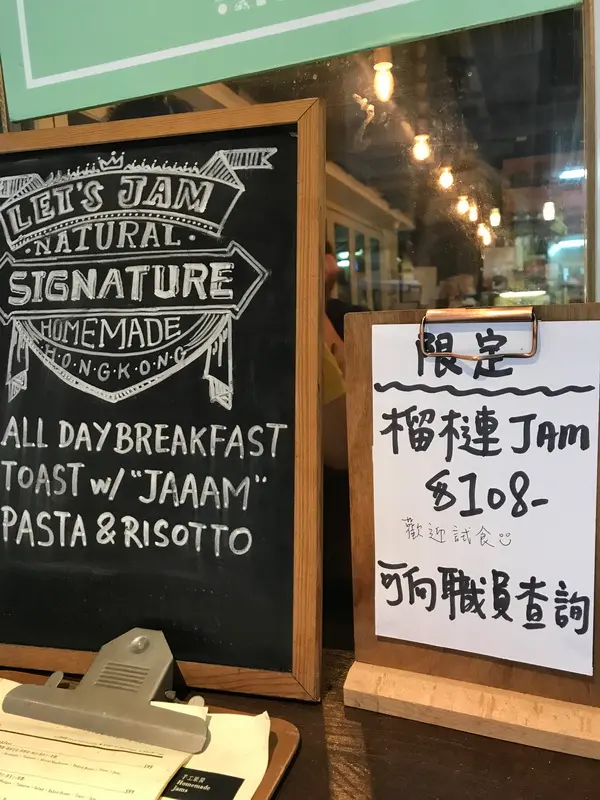 LET'S JAM
· NATURAL ·
SIGNATURE
HOMEMADE
H·O·N·G·K·O·N·G
ALL DAY BREAKFAST
TOAST w/ "JAAAM"
PASTA & RISOTTO
限定
榴槤 JAM
$108-
歡迎試食☺
可向職員查詢
手工果醬
Homemade
Jams